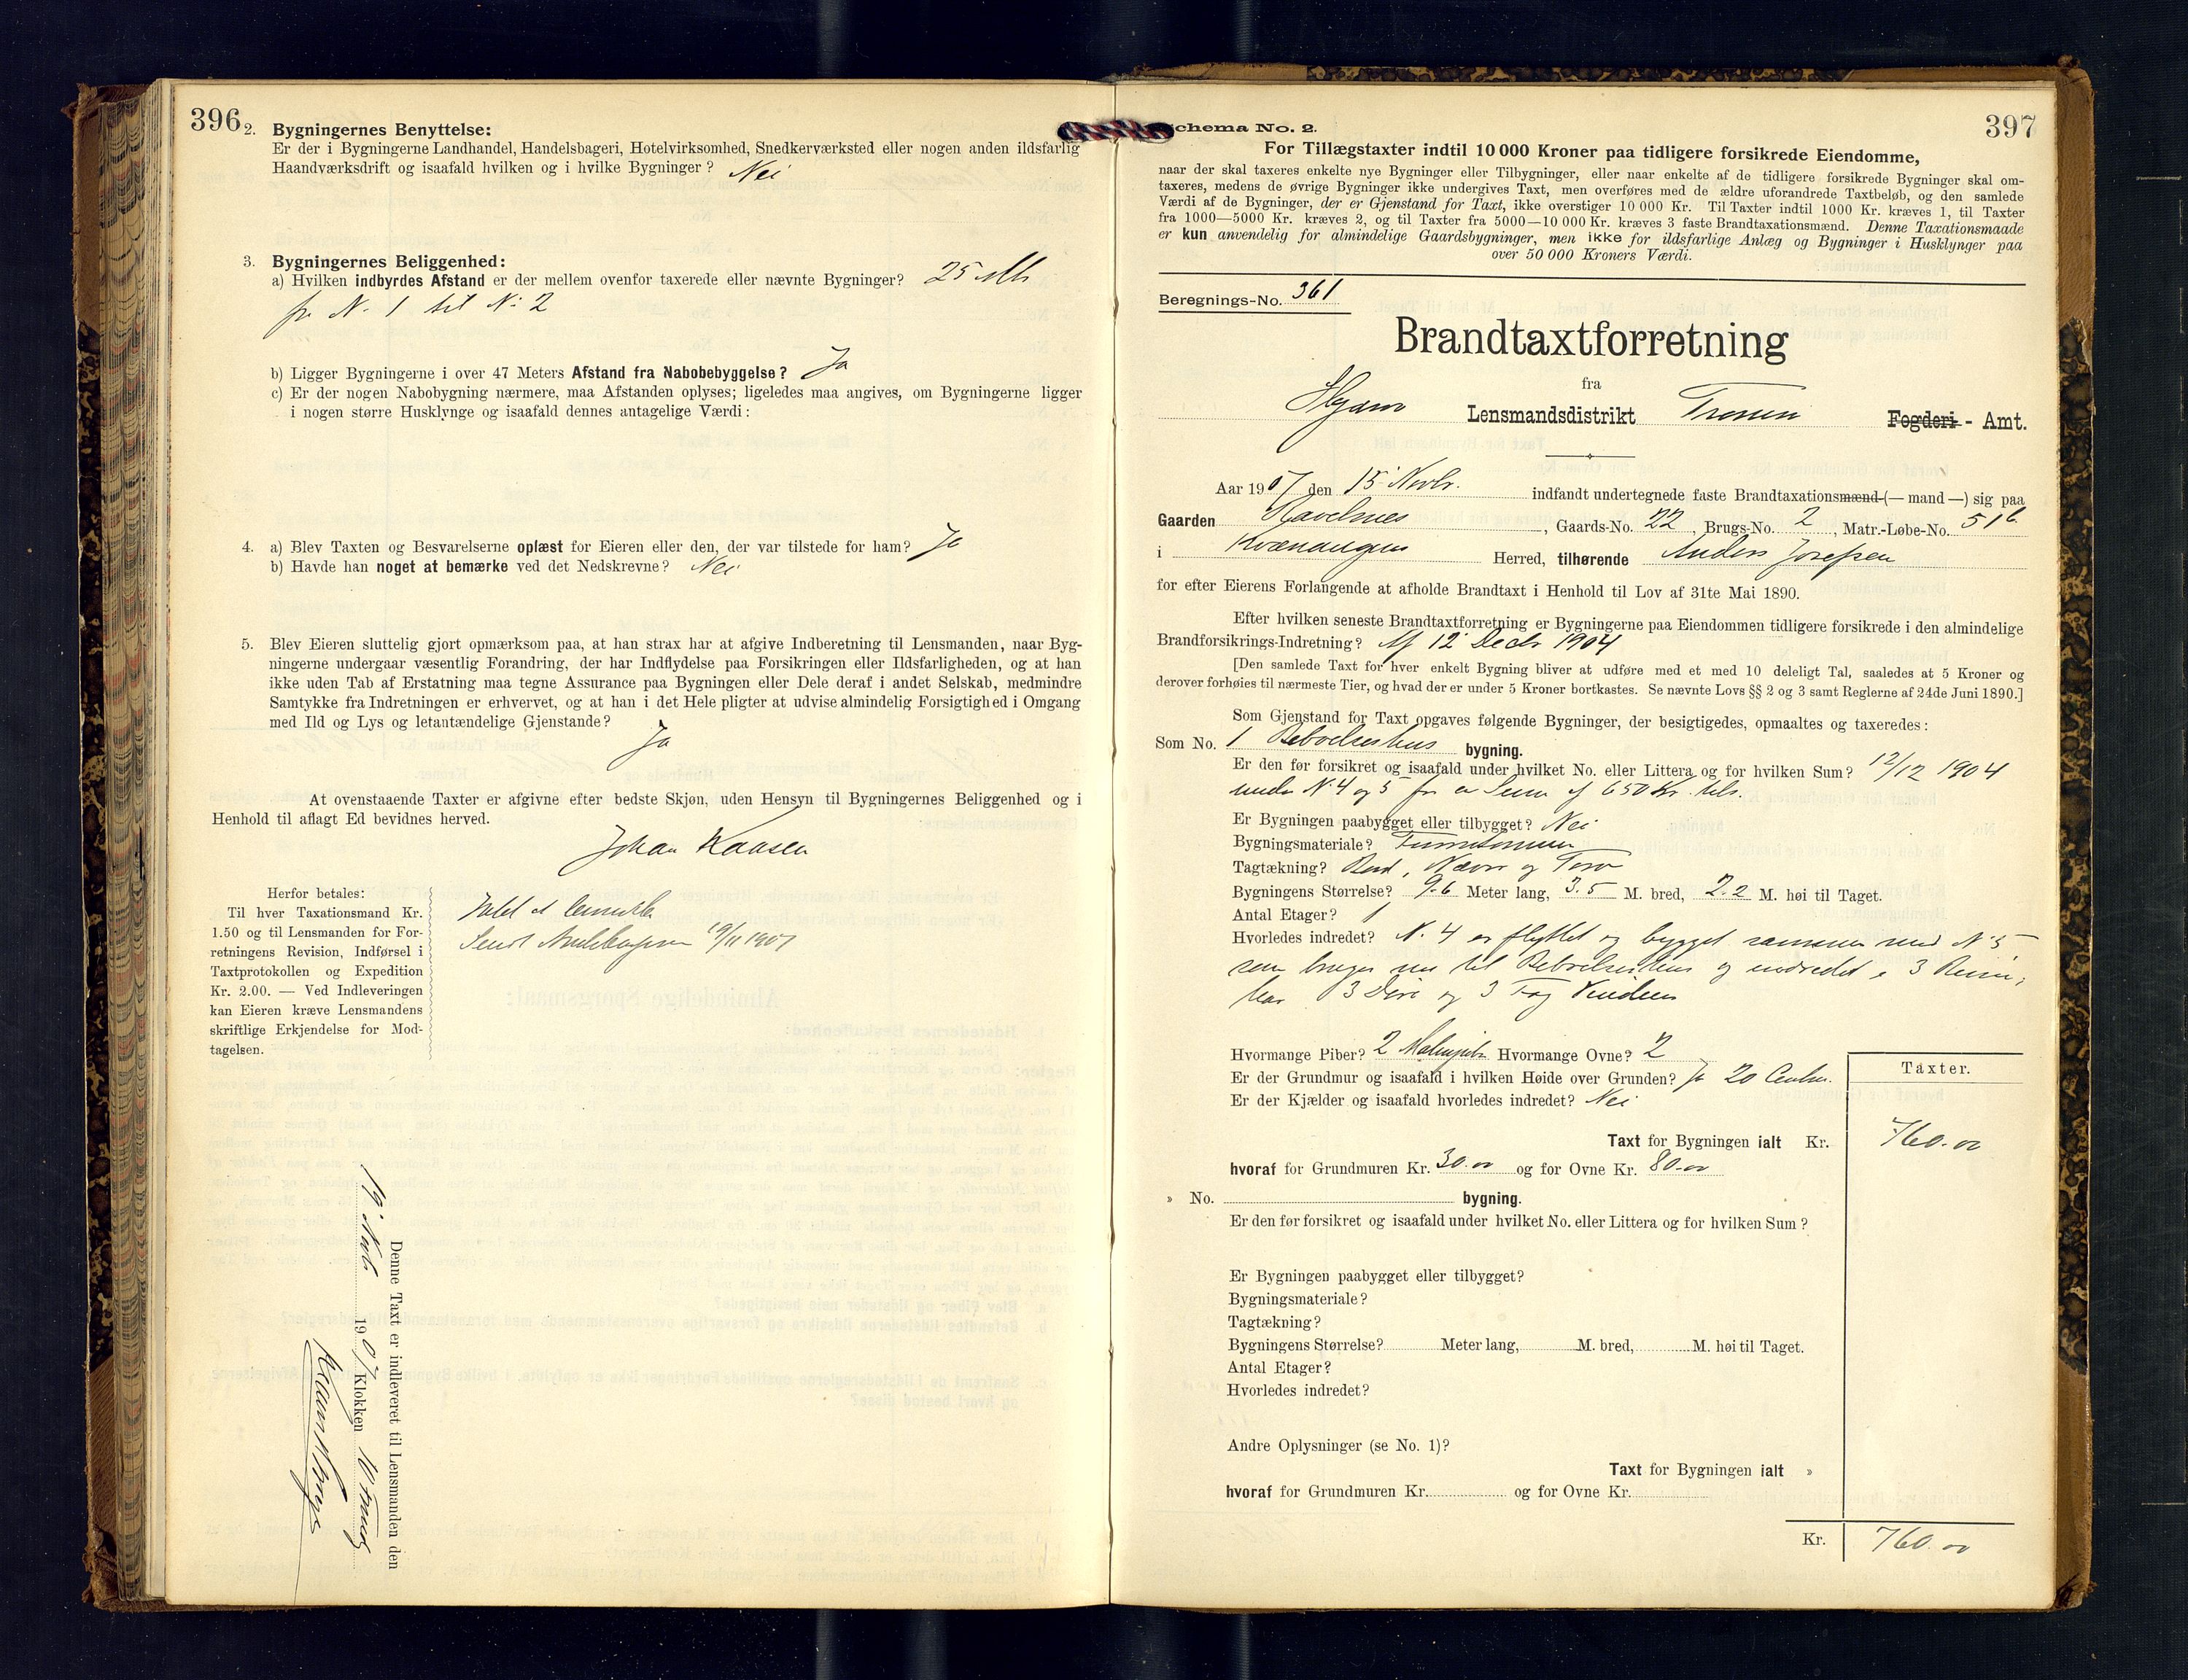 396
2. Bygningernes Benyttelse:
Er der i Bygningerne Landhandel, Handelsbageri, Hotelvirksomhed, Snedkerværksted eller nogen anden ildsfarlig
Haandværksdrift og isaafald hvilken og i hvilke Bygninger? Nei
3. Bygningernes Beliggenhed:
a) Hvilken indbyrdes Afstand er der mellem ovenfor taxerede eller nævnte Bygninger? 25 Mtr
fra No. 1 til No. 2
b) Ligger Bygningerne i over 47 Meters Afstand fra Nabobebyggelse? Ja
c) Er der nogen Nabobygning nærmere, maa Afstanden oplyses; ligeledes maa angives, om Bygningerne ligger
i nogen større Husklynge og isaafald dennes antagelige Værdi:
4. a) Blev Taxten og Besvarelserne oplæst for Eieren eller den, der var tilstede for ham? Ja
b) Havde han noget at bemærke ved det Nedskrevne? Nei
5. Blev Eieren sluttelig gjort opmærksom paa, at han strax har at afgive Indberetning til Lensmanden, naar Byg-
ningerne undergaar væsentlig Forandring, der har Indflydelse paa Forsikringen eller Ildsfarligheden, og at han
ikke uden Tab af Erstatning maa tegne Assurance paa Bygningen eller Dele deraf i andet Selskab, medmindre
Samtykke fra Indretningen er erhvervet, og at han i det Hele pligter at udvise almindelig Forsigtighed i Omgang
med Ild og Lys og letantændelige Gjenstande?
Ja
At ovenstaaende Taxter er afgivne efter bedste Skjøn, uden Hensyn til Bygningernes Beliggenhed og i
Henhold til aflagt Ed bevidnes herved.
Johan Kaasen
Herfor betales:
Til hver Taxationsmand Kr.
1.50 og til Lensmanden for For-
retningens Revision, Indførsel i
Taxtprotokollen og Expedition
Kr. 2.00. — Ved Indleveringen
kan Eieren kræve Lensmandens
skriftlige Erkjendelse for Mod-
tagelsen.
Sendt 19/11 1907
Denne Taxt er indleveret til Lensmanden den
19. Novbr 1907 Klokken 10
397
Schema No. 2.
For Tillægstaxter indtil 10 000 Kroner paa tidligere forsikrede Eiendomme,
naar der skal taxeres enkelte nye Bygninger eller Tilbygninger, eller naar enkelte af de tidligere forsikrede Bygninger skal om-
taxeres, medens de øvrige Bygninger ikke undergives Taxt, men overføres med de ældre uforandrede Taxtbeløb, og den samlede
Værdi af de Bygninger, der er Gjenstand for Taxt, ikke overstiger 10 000 Kr. Til Taxter indtil 1000 Kr. kræves 1, til Taxter
fra 1000—5000 Kr. kræves 2, og til Taxter fra 5000—10 000 Kr. kræves 3 faste Brandtaxationsmænd. Denne Taxationsmaade
er kun anvendelig for almindelige Gaardsbygninger, men ikke for ildsfarlige Anlæg og Bygninger i Husklynger paa
over 50 000 Kroners Værdi.
Beregnings-No. 361
Brandtaxtforretning
fra
Lensmandsdistrikt Fogderi - Amt.
Aar 1907 den 15 Novbr. indfandt undertegnede faste Brandtaxationsmænd (— mand —) sig paa
Gaarden , Gaards-No. 22, Brugs-No. 2, Matr.-Løbe-No. 51b
i Kvænangen Herred, tilhørende Anders Josefsen
for efter Eierens Forlangende at afholde Brandtaxt i Henhold til Lov af 31te Mai 1890.
Efter hvilken seneste Brandtaxtforretning er Bygningerne paa Eiendommen tidligere forsikrede i den almindelige
Brandforsikrings-Indretning? Af 12 Decbr 1904
[Den samlede Taxt for hver enkelt Bygning bliver at udføre med et med 10 deleligt Tal, saaledes at 5 Kroner og
derover forhøies til nærmeste Tier, og hvad der er under 5 Kroner bortkastes. Se nævnte Lovs §§ 2 og 3 samt Reglerne af 24de Juni 1890.]
Som Gjenstand for Taxt opgaves følgende Bygninger, der besigtigedes, opmaaltes og taxeredes:
Som No. 1 Beboelseshus bygning.
Er den før forsikret og isaafald under hvilket No. eller Littera og for hvilken Sum? 12/12 1904
under No. 4 og 5 for en Sum af 650 Kr. tils.
Er Bygningen paabygget eller tilbygget? Nei
Bygningsmateriale? Furutømmer
Tagtækning? Bord, Næver og Torv
Bygningens Størrelse? 9.6 Meter lang, 3.5 M. bred, 2.2 M. høi til Taget.
Antal Etager? 1
Hvorledes indredet? No. 4 er flyttet og bygget sammen med No. 5
som bruges nu til Beboelseshus og indredet i 3 Rum;
har 3 Døre og 3 Fag Vinduer
Hvormange Piber? 2 Hvormange Ovne? 2
Er der Grundmur og isaafald i hvilken Høide over Grunden? Ja 20 Centm.
Er der Kjælder og isaafald hvorledes indredet? Nei
Taxter.
Taxt for Bygningen ialt Kr. 760.00
hvoraf for Grundmuren Kr. 30.00 og for Ovne Kr. 80.00
» No. bygning.
Er den før forsikret og isaafald under hvilket No. eller Littera og for hvilken Sum?
Er Bygningen paabygget eller tilbygget?
Bygningsmateriale?
Tagtækning?
Bygningens Størrelse? Meter lang, M. bred, M. høi til Taget.
Antal Etager?
Hvorledes indredet?
Andre Oplysninger (se No. 1)?
Taxt for Bygningen ialt »
hvoraf for Grundmuren Kr. og for Ovne Kr.
Kr. 760.00